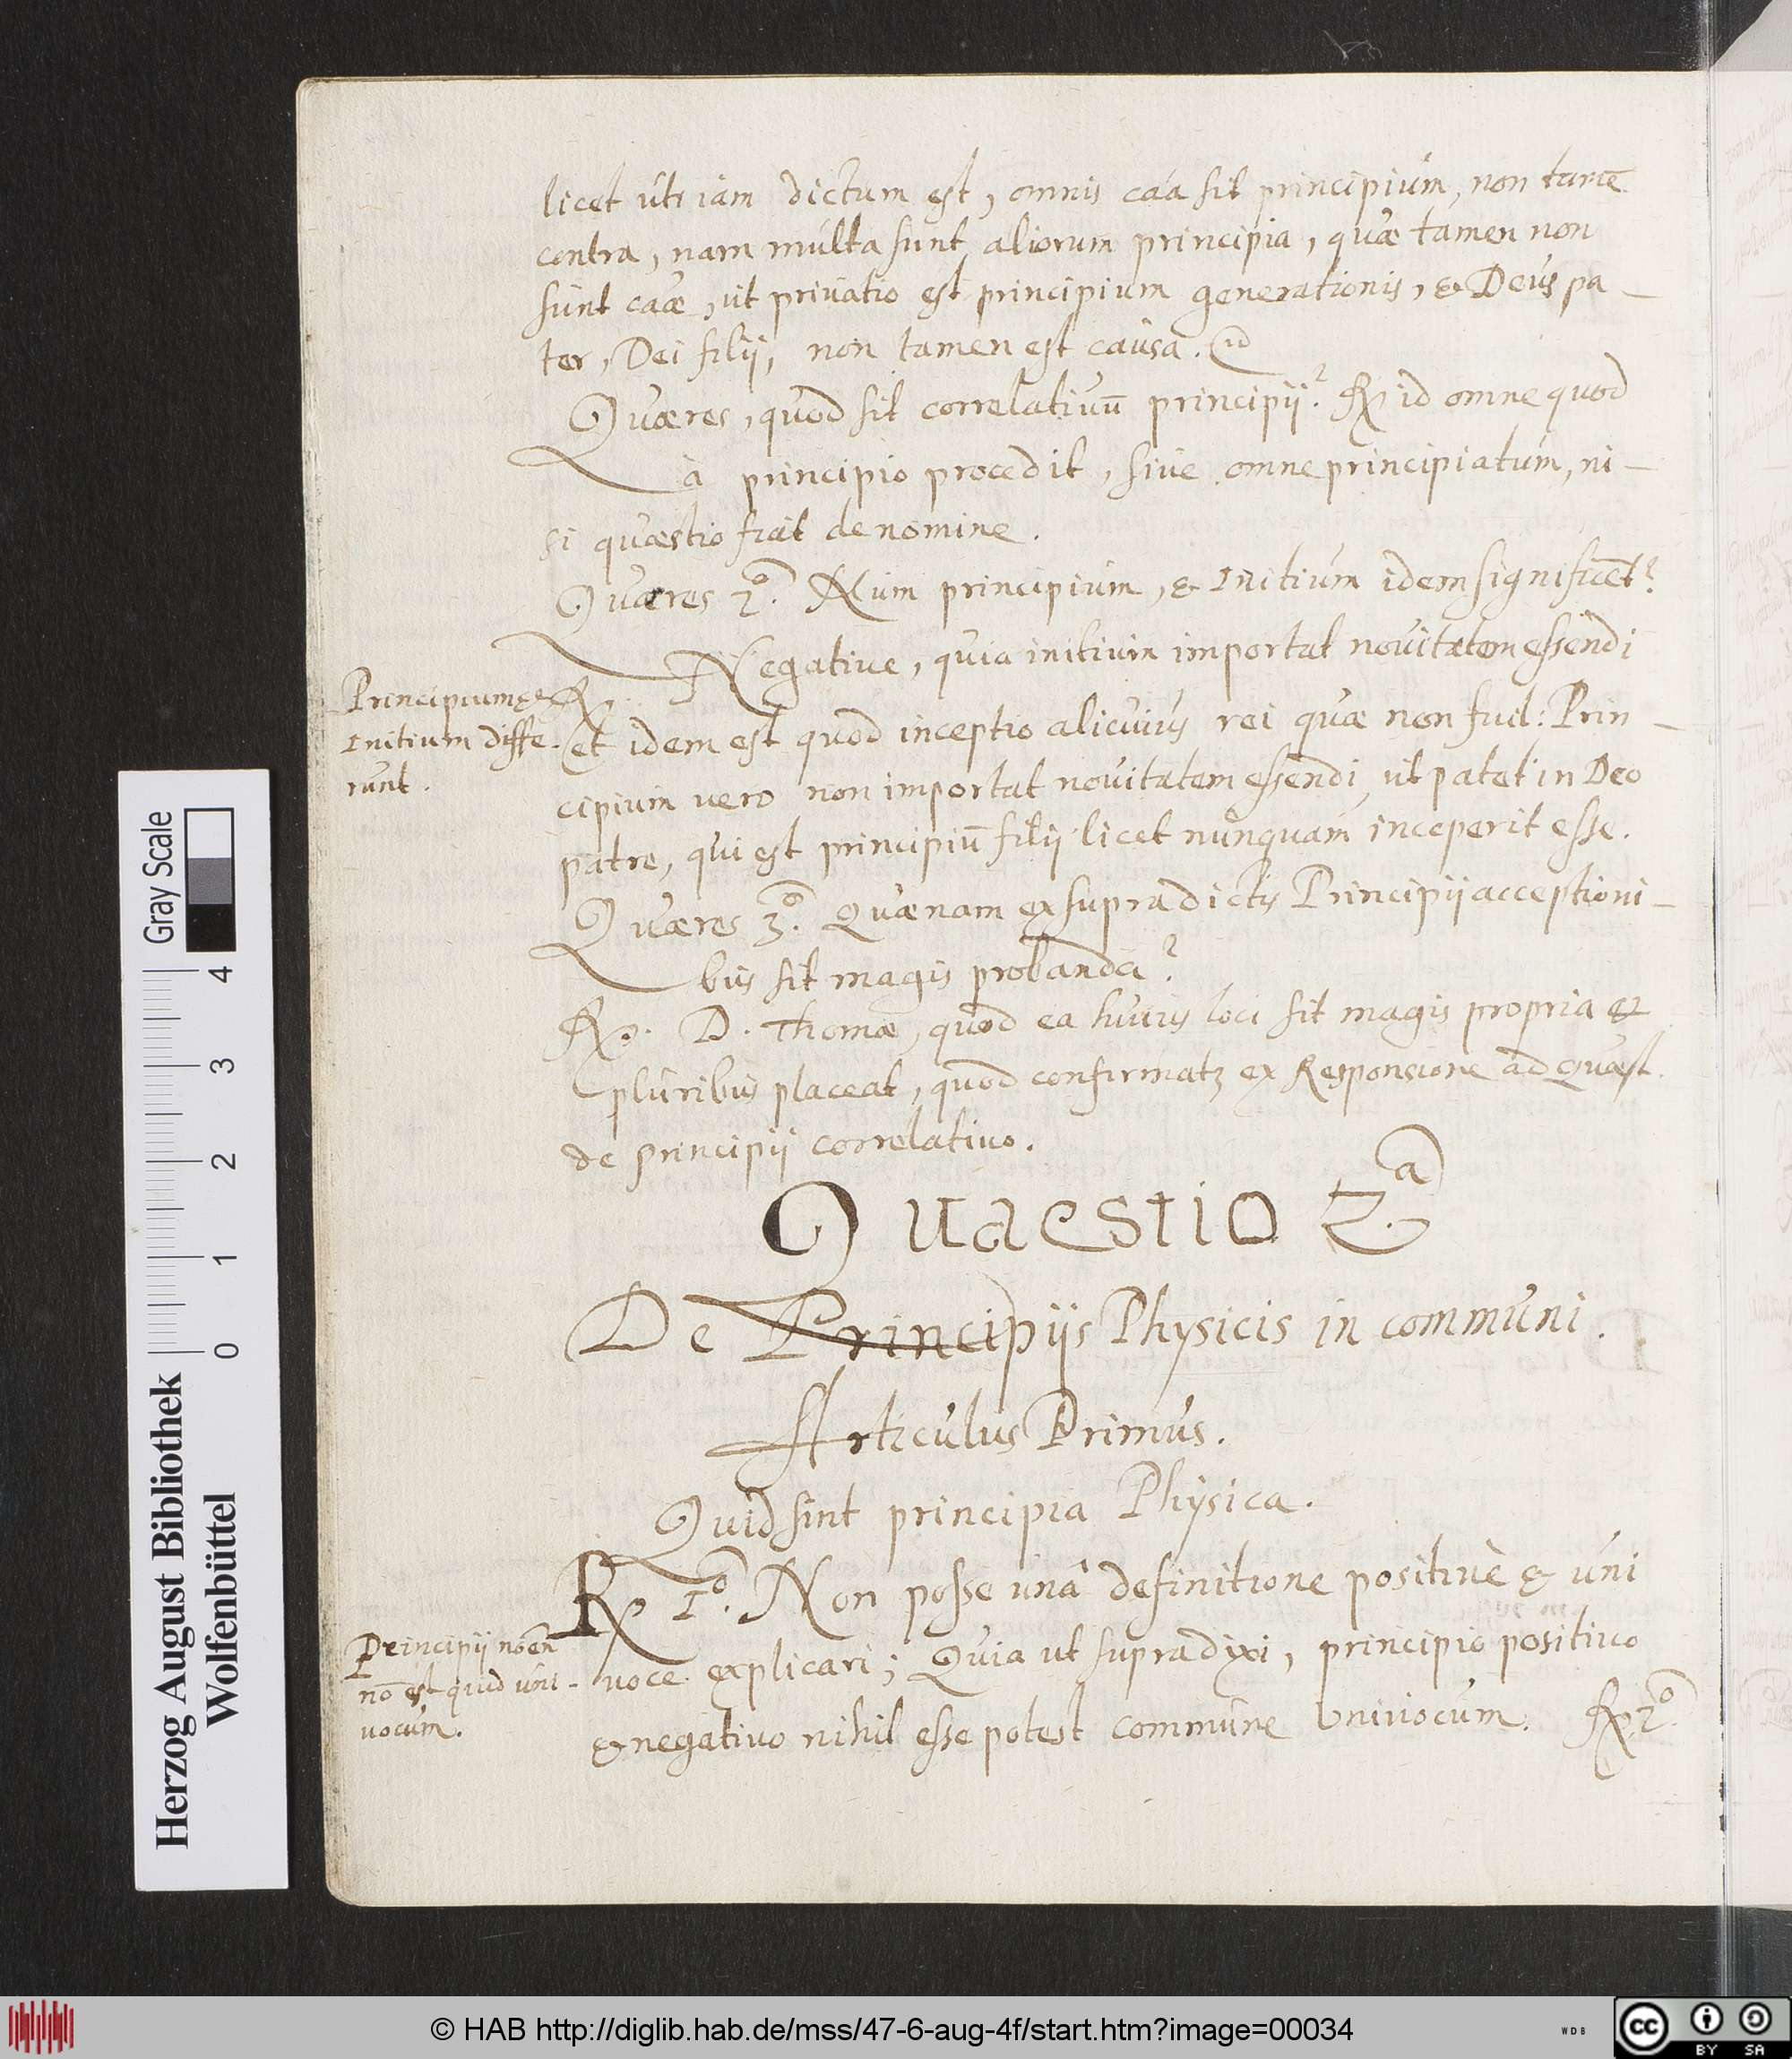 licet uti iam dictum est, omnis caa sit principium, non tamē
contra, nam multa sunt aliorum principia, quæ tamen non
sunt caæ, ut privatio est principium generationis, & Deus pa-
ter, Dei filij, non tamen est causa.
Quæres, quod sit correlativū principij? R id omne quod
à principio procedit, sive omne principiatum, ni-
si quæstio fiat de nomine.
Quæres 2º. Num principium, & Initium idem significēt?
Negative, quia initium importat novitatem essendi
Principium & R.
Initium diffe-
runt.
et idem est quod inceptio alicuius rei quæ non fuit: Prin-
cipium vero non importat novitatem essendi, ut patet in Deo
patre, qui est principiū filij licet nunquam inceperit esse.
Quæres 3º. Quænam ex supradictis Principij acceptioni-
bus sit magis probanda?
R. D. Thomæ, quod ea huius loci sit magis propria et
pluribus placeat, quod confirmatz ex Responsione ad Quæst.
de principij correlativo.
Quaestio 2.a
De Principijs Physicis in communi.
Articulus Primus.
Quid sint principia Physica.
R 1º. Non posse unâ definitione positivè & uni
voce explicari; Quia ut supra dixi, principio positivo
Principij noēn
nō est quid uni-
vocum.
& negativo nihil esse potest commune Univocum. R 2º.
Gray Scale
4
3
2
1
0
Herzog August Bibliothek
Wolfenbüttel
© HAB http://diglib.hab.de/mss/47-6-aug-4f/start.htm?image=00034
WDB
cc
BY SA